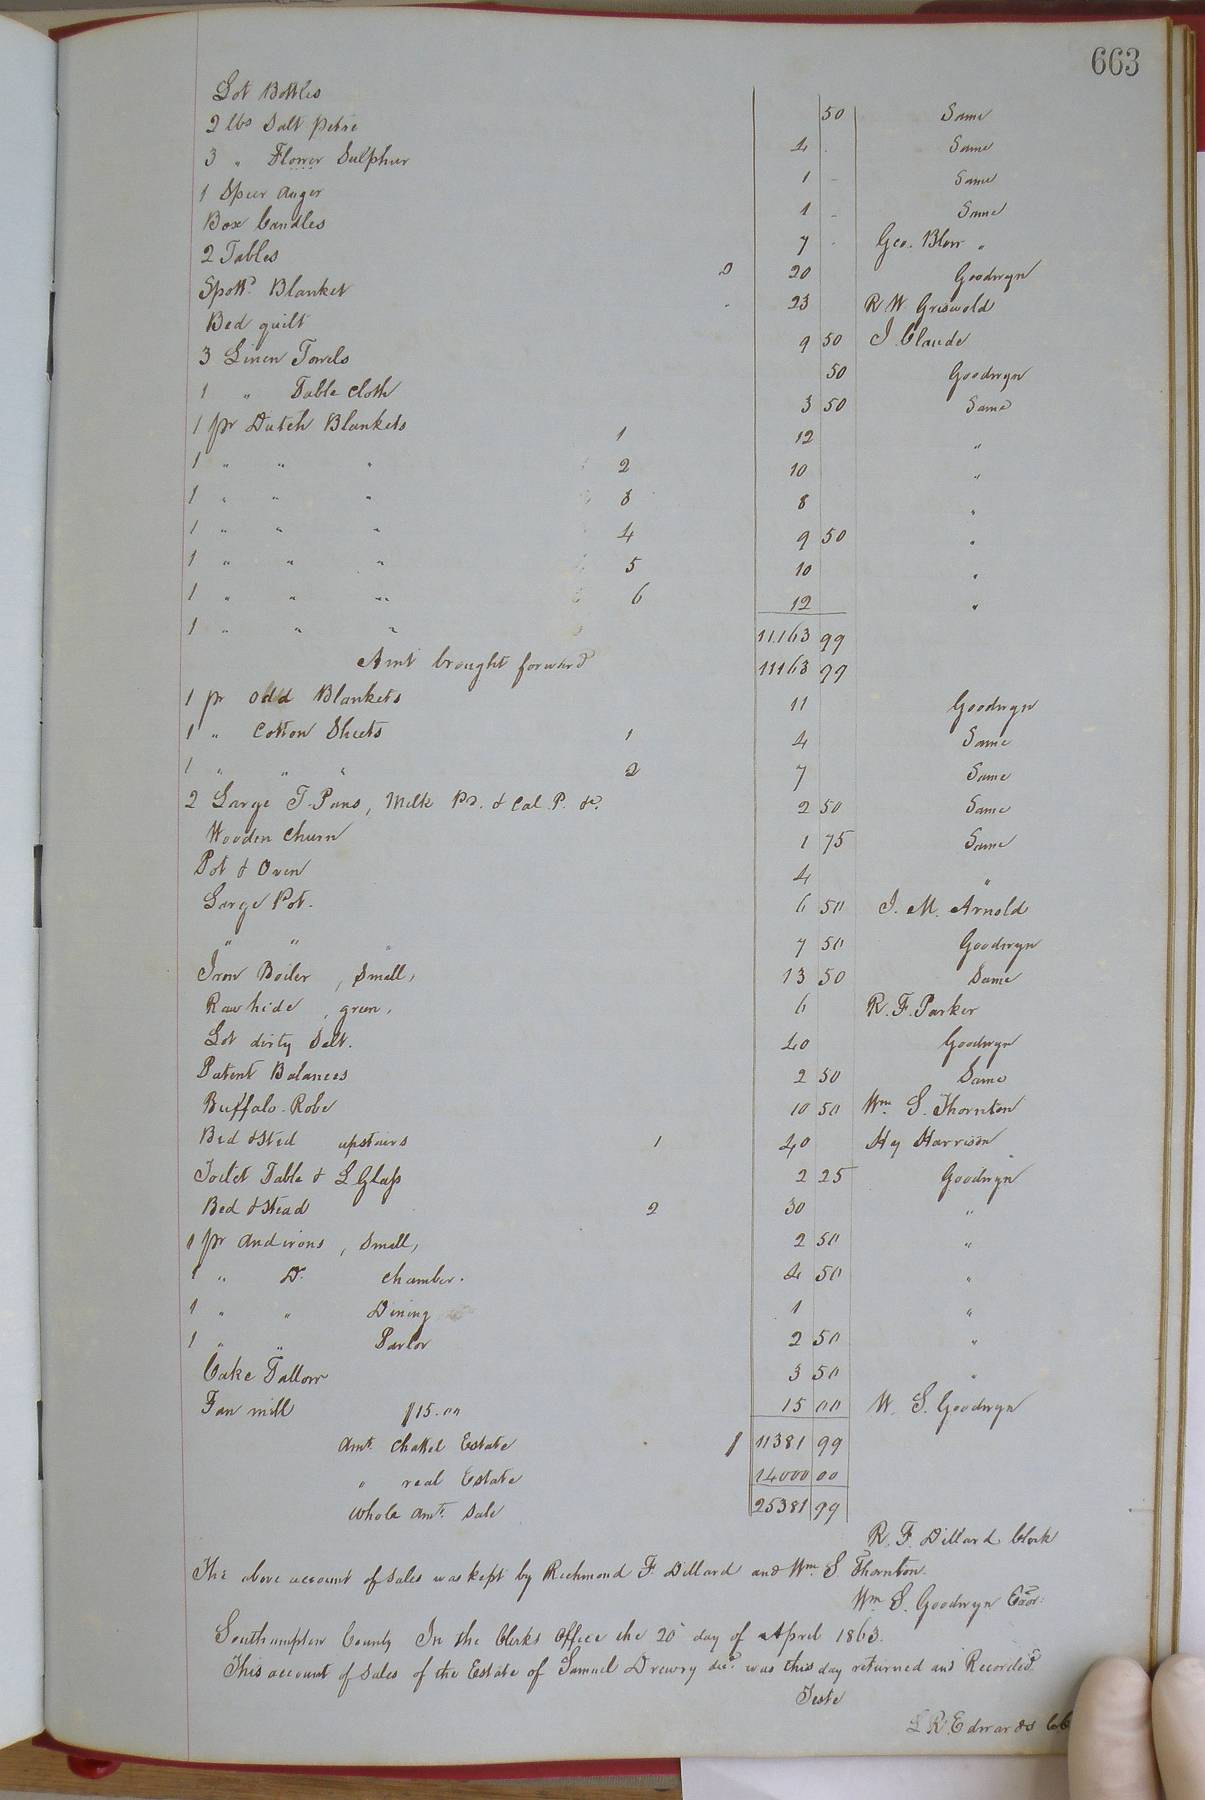 663
Lot Bottles 50 Same
2 lbs Salt petre 4 Same
3 " Flower Sulphur 1 - Same
1 Spier Auger 1 - Same
Box Candles 7 Geo. Blow "
2 Tables 2 20 Goodwyn
Spottd Blanket 23 R W Griswold
Bed quilt 9 50 J. Claude
3 Linen Towels 50 Goodwyn
1 " Table Cloth 3 50 Same
1 pr Dutch Blankets 1 12 "
1 " " " 2 10 "
1 " " " 3 8 "
1 " " " 4 9 50 "
1 " " " 5 10 "
1 " " " 6 12 "
1 " " " 11.163 99
Amt brought forward 11163 99
1 pr odd Blankets 11 Goodwyn
1 " Cotton Sheets 1 4 Same
1 " " " 2 7 Same
2 Large T. Pans, Milk Ps. & Cal. P. &c. 2 50 Same
Wooden Churn 1 75 Same
Pot & Oven 4 "
Large Pot. 6 50 J. M. Arnold
" " " 7 50 Goodwyn
Iron Boiler, Small, 13 50 Same
Raw hide, green, 6 R. F. Parker
Lot dirty Salt. 40 Goodwyn
Patent Balances 2 50 Same
Buffalo-Robe 10 50 Wm. S. Thornton
Bed & Sted upstairs 1 40 Hy Harrison
Toilet Table & L Glass 2 25 Goodwyn
Bed & Stead 2 30 "
1 pr Andirons, Small, 2 50 "
1 " Do. Chamber. 4 50 "
1 " " Dining 1 "
1 " " Parlor 2 50 "
Cake Tallow 3 50 "
Fan mill $15.00 15 00 W. S. Goodwyn
Amt. Chattel Estate $ 11381 99
" real Estate 14000 00
Whole Amt. Sale 25381 99
R. F. Dillard Clerk
The above account of sales was kept by Richmond F. Dillard and Wm. S Thornton.
Wm S. Goodwyn Exor:
Southampton County In the Clerks Office the 20th day of April 1863.
This account of sales of the Estate of Samuel Drewry decd. was this day returned and Recorded.
Teste
L R. Edwards